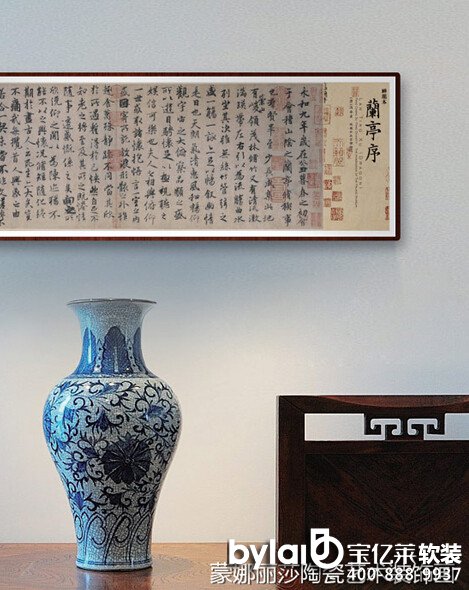 神龍本
蘭亭序
永和九年歲在癸丑暮春之初會
于會稽山陰之蘭亭脩稧事
也群賢畢至少長咸集此地
有崇山峻領茂林脩竹又有清流激
湍暎帶左右引以為流觴曲水
列坐其次雖無絲竹管弦之
盛一觴一詠亦足以暢敘幽情
是日也天朗氣清惠風和暢仰
觀宇宙之大俯察品類之盛
所以遊目騁懷足以極視聽之
娛信可樂也夫人之相與俯仰
一世或取諸懷抱悟言一室之內
或因寄所託放浪形骸之外雖
趣舍萬殊靜躁不同當其欣
於所遇暫得於己怏然自足不
知老之將至及其所之既惓情
隨事遷感慨係之矣向之所
欣俛仰之間以為陳迹猶不
能不以之興懷況脩短隨化終
期於盡古人云死生亦大矣豈
不痛哉每攬昔人興感之由
若合一契未嘗不臨文嗟悼不
bylai 宝亿莱软装
400-888-9937
蒙娜丽莎陶瓷